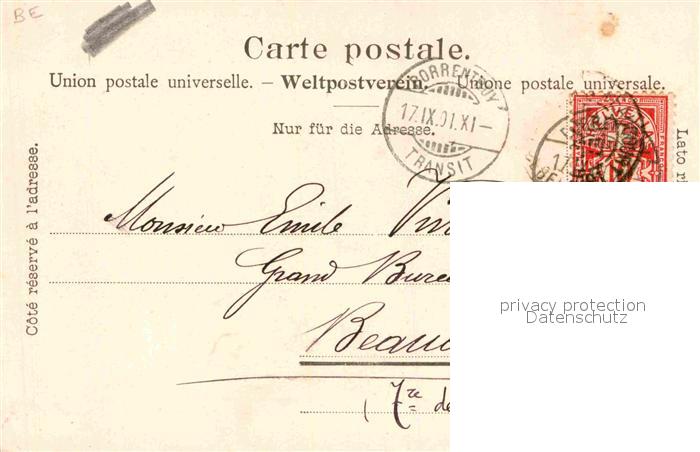 BE
Carte postale.
Union postale universelle. – Weltpostverein. – Unione postale universale.
PORRENTRUY
17.IX.01.XI–
TRANSIT
Nur für die Adresse.
Côté réservé à l'adresse.
Lato
Monsieur Emile
Grand Bure
Beau
(7re de
privacy protection
Datenschutz